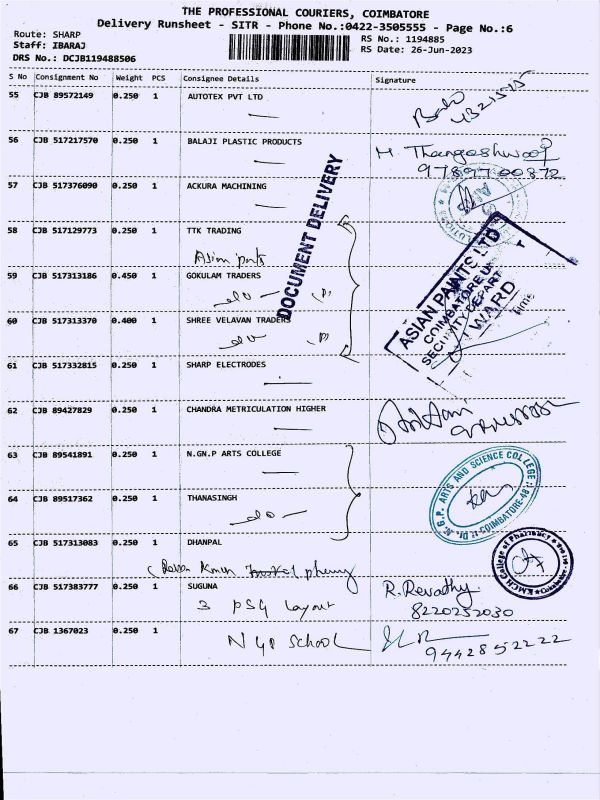 THE PROFESSIONAL COURIERS, COIMBATORE
Delivery Runsheet - SITR - Phone No.:0422-3505555 - Page No.:6
Route: SHARP
Staff: IBARAJ
DRS No.: DCJB119488506
RS No.: 1194885
RS Date: 26-Jun-2023
S No Consignment No Weight PCS Consignee Details Signature
55 CJB 89572149 0.250 1 AUTOTEX PVT LTD
56 CJB 517217570 0.250 1 BALAJI PLASTIC PRODUCTS
9789700872
57 CJB 517376090 0.250 1 ACKURA MACHINING
DOCUMENT DELIVERY
58 CJB 517129773 0.250 1 TTK TRADING
Asian paints
59 CJB 517313186 0.450 1 GOKULAM TRADERS
ASIAN PAINTS LTD
COIMBATORE
SECURITY DEPART
WARD
Time
60 CJB 517313370 0.400 1 SHREE VELAVAN TRADERS
61 CJB 517332815 0.250 1 SHARP ELECTRODES
62 CJB 89427829 0.250 1 CHANDRA METRICULATION HIGHER
63 CJB 89541891 0.250 1 N.GN.P ARTS COLLEGE
Dr. N.G.P. ARTS AND SCIENCE COLLEGE
COIMBATORE-48
64 CJB 89517362 0.250 1 THANASINGH
65 CJB 517313083 0.250 1 DHANPAL
KMCH College of Pharmacy
66 CJB 517383777 0.250 1 SUGUNA
3 PSG Layout
R. Revathy
8220252030
67 CJB 1367023 0.250 1
NGP School
9442852222